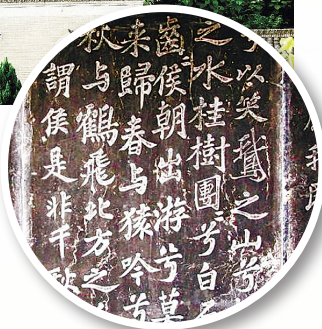 我民
以笑鵞之山兮
之水桂樹團〻兮白石
齒〻侯朝出游兮暮
來歸春与猿吟兮
秋与鶴飛北方之
謂侯是非千秋